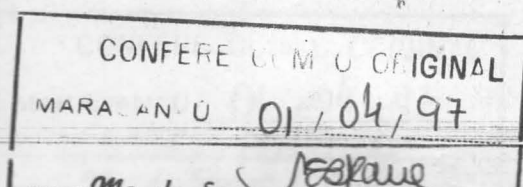 CONFERE COM O ORIGINAL
MARACANÚ 01/04/97